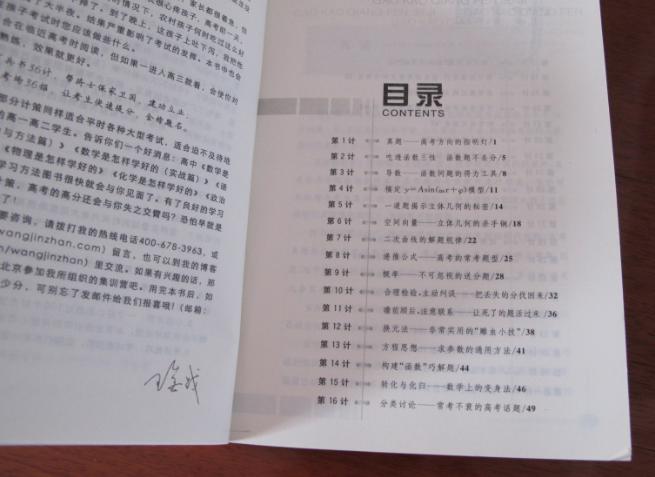 家长都很着急, 怕
很心疼孩子, 高考前一天,
时情况下, 农村孩子何时吃过这么好
了大半夜。结果严重影响了考试的发挥。本书中也会
孩子考试时您应该做些什么。
会在临近高考时阅读, 但如果一进入高三就看, 会使你对
熟练, 效果就更好。
兵书36计, 帮将士保家卫国, 建功立业。
考场36招, 让考生快速提分, 金榜题名。
部分计策同样适合平时各种大型考试, 适合迫不及待地
的高一高二学生。告诉你们一个好消息: 高中《数学是
与方法篇)》《数学是怎样学好的(实战篇)》《语
《物理是怎样学好的》《化学是怎样学好的》《政治
学习方法图书很快就会与你见面了。有了良好的学习
策, 高考的高分还会与你失之交臂吗? 恐怕早就是
了!
要咨询, 请拨打我的热线电话400-678-3963, 或
wangjinzhan.com) 留言, 也可以到我的博客
n/wangjinzhan) 里交流。如果有兴趣的话, 那
北京参加我所组织的集训营吧。用完本书后, 如
少分, 可别忘了发邮件给我们报喜哦! (邮箱:
王金战
目录
CONTENTS
第1计 真题——高考方向的指明灯/1
第2计 吃透函数三性 函数题不丢分/5
第3计 导数——函数问题的得力工具/8
第4计 搞定 y=Asin(ωx+φ)模型/11
第5计 一道题揭示立体几何的标签/14
第6计 空间向量——立体几何的杀手锏/18
第7计 二次曲线的解题规律/22
第8计 递推公式——高考的常考题型/25
第9计 概率——不可忽视的送分题/28
第10计 合理检验,主动纠误——把丢失的分找回来/32
第11计 瞻前顾后,注意联系——让死了的题活过来/36
第12计 换元法——非常实用的“雕虫小技”/38
第13计 方程思想——求参数的通用方法/41
第14计 构建“函数”巧解题/44
第15计 转化与化归——数学上的变身法/46
第16计 分类讨论——常考不衰的高考话题/49